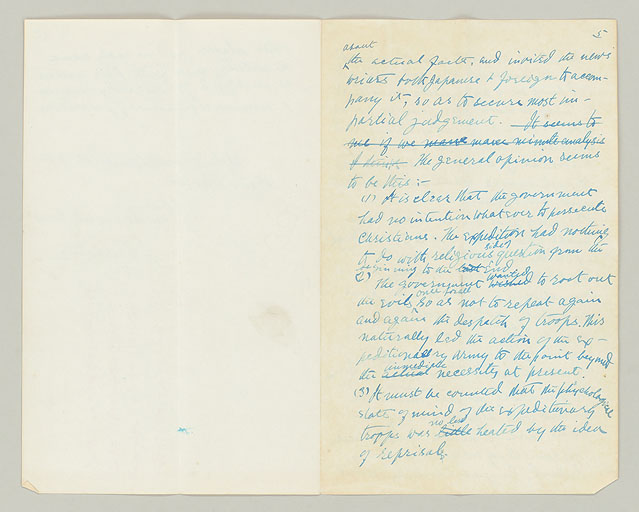 5
about
the actual facts, and invited the news
writers both Japanese & foreign to accom-
pany it, so as to secure most im-
partial judgement. It seems to
me if we make more minute analysis
of things. The general opinion seems
to be this:-
(1) It is clear that the government
had no intention whatsoever to persecute
Christians. The expedition had nothing
to do with religious side question from the
beginning to the last end.
(2) The government wished wanted to root out
the evils once for all so as not to repeat again
and again the despatch of troops. This
naturally led the action of the ex-
peditionary army to the point beyond
the actual immediate necessity at present.
(3) It must be counted that the psychological
state of mind of the expeditionary
troops was little no less heated by the idea
of reprisal.